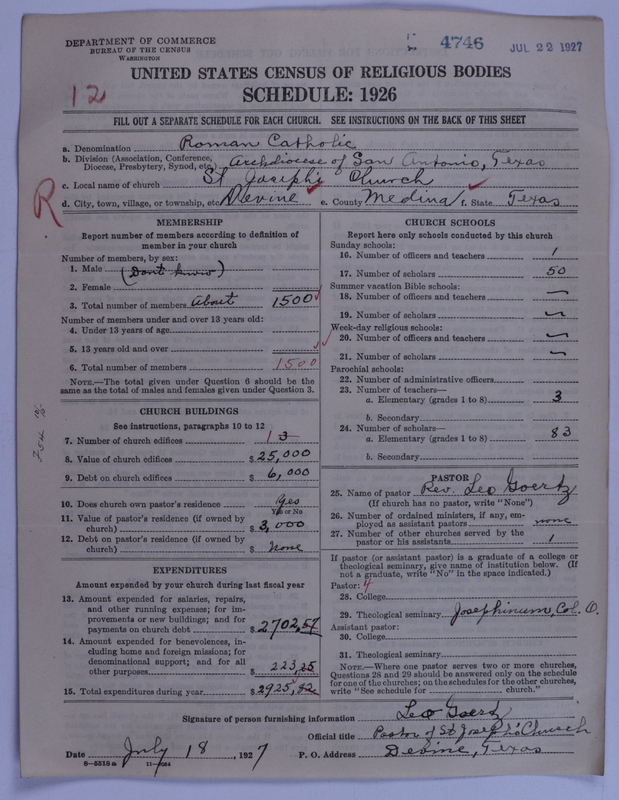 DEPARTMENT OF COMMERCE
BUREAU OF THE CENSUS
WASHINGTON
4746
JUL 22 1927
UNITED STATES CENSUS OF RELIGIOUS BODIES
12
SCHEDULE: 1926
FILL OUT A SEPARATE SCHEDULE FOR EACH CHURCH. SEE INSTRUCTIONS ON THE BACK OF THIS SHEET
a. Denomination Roman Catholic
b. Division (Association, Conference, Diocese, Presbytery, Synod, etc.) Archdiocese of San Antonio, Texas
c. Local name of church St Joseph's Church
R
d. City, town, village, or township, etc. Devine e. County Medina f. State Texas
MEMBERSHIP
Report number of members according to definition of
member in your church
Number of members, by sex:
1. Male (Don't know)
2. Female
3. Total number of members About 1500
Number of members under and over 13 years old:
4. Under 13 years of age
5. 13 years old and over
6. Total number of members 1500
NOTE.—The total given under Question 6 should be the
same as the total of males and females given under Question 3.
CHURCH BUILDINGS
See instructions, paragraphs 10 to 12
7. Number of church edifices 1 3
8. Value of church edifices $ 25,000
9. Debt on church edifices $ 6,000
10. Does church own pastor's residence Yes
Yes or No
11. Value of pastor's residence (if owned by
church) $ 3,000
12. Debt on pastor's residence (if owned by
church) $ none
EXPENDITURES
Amount expended by your church during last fiscal year
13. Amount expended for salaries, repairs,
and other running expenses; for im-
provements or new buildings; and for
payments on church debt $ 2702,57
14. Amount expended for benevolences, in-
cluding home and foreign missions; for
denominational support; and for all
other purposes $ 223,25
15. Total expenditures during year $ 2925,82
CHURCH SCHOOLS
Report here only schools conducted by this church
Sunday schools:
16. Number of officers and teachers 1
17. Number of scholars 50
Summer vacation Bible schools:
18. Number of officers and teachers —
19. Number of scholars —
Week-day religious schools:
20. Number of officers and teachers —
21. Number of scholars —
Parochial schools:
22. Number of administrative officers
23. Number of teachers—
a. Elementary (grades 1 to 8) 3
b. Secondary
24. Number of scholars—
a. Elementary (grades 1 to 8) 83
b. Secondary
PASTOR
25. Name of pastor Rev. Leo Goertz
(If church has no pastor, write "None")
26. Number of ordained ministers, if any, em-
ployed as assistant pastors none
27. Number of other churches served by the
pastor or his assistants 1
If pastor (or assistant pastor) is a graduate of a college or
theological seminary, give name of institution below. (If
not a graduate, write "No" in the space indicated.)
Pastor: 4
28. College
29. Theological seminary Josephinum, Col. O.
Assistant pastor:
30. College
31. Theological seminary
NOTE.—Where one pastor serves two or more churches,
Questions 28 and 29 should be answered only on the schedule
for one of the churches; on the schedules for the other churches,
write "See schedule for church."
Signature of person furnishing information Leo Goertz
Official title Pastor of St Joseph's Church
Date July 18, 1927 P. O. Address Devine, Texas